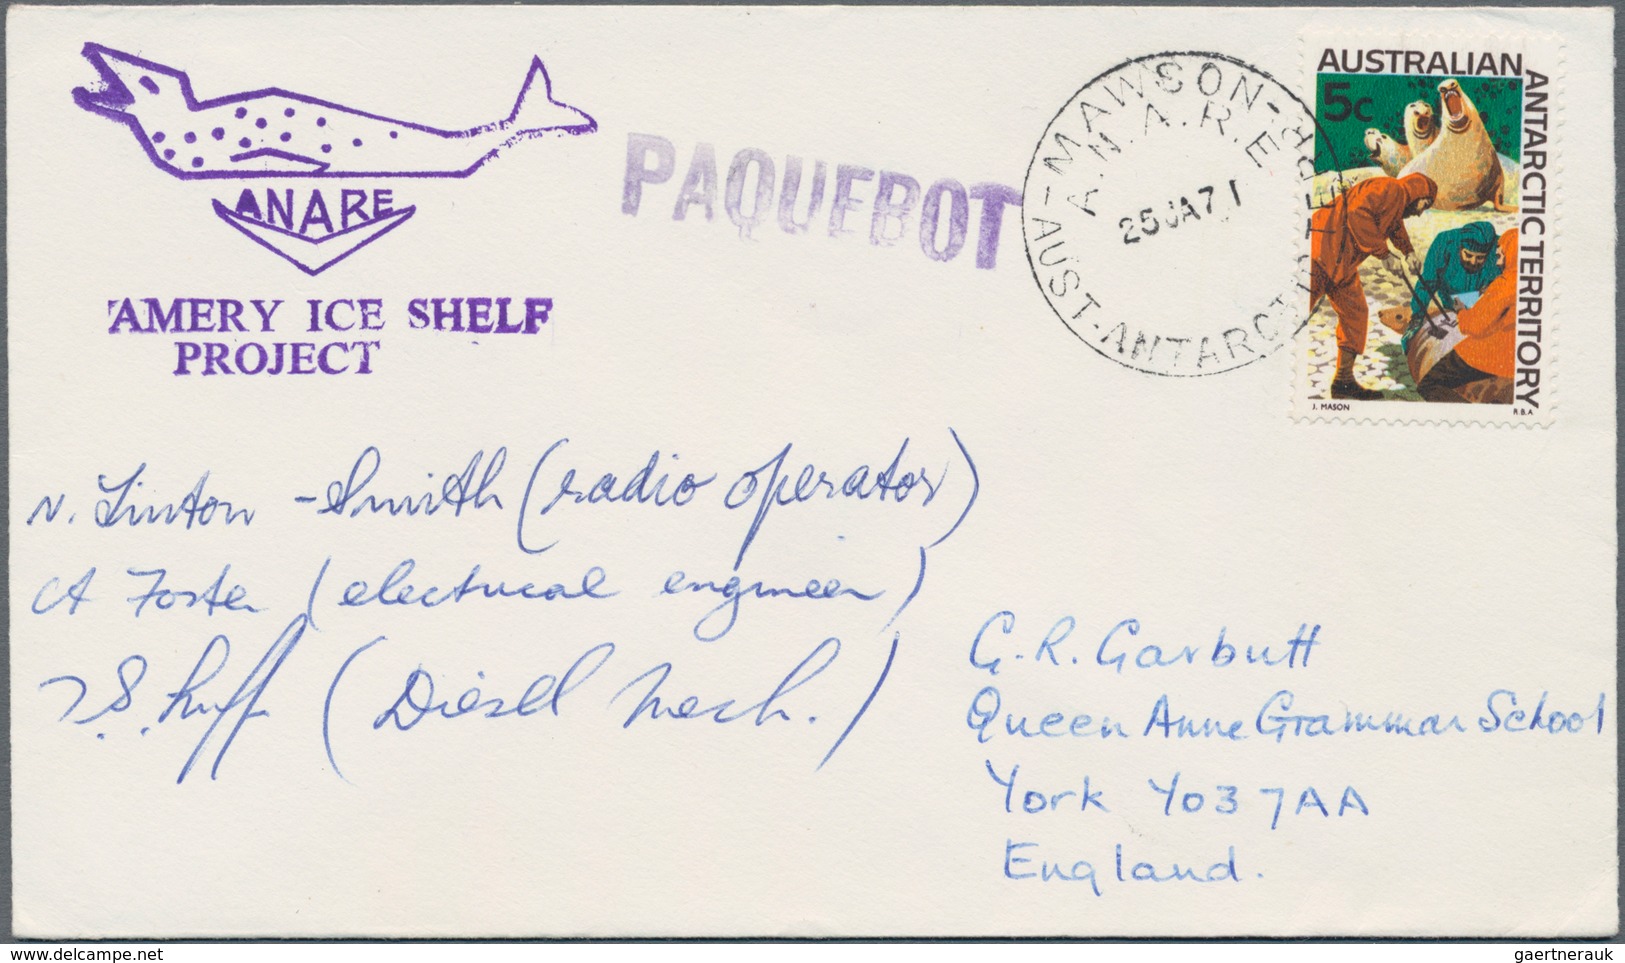 ANARE
AMERY ICE SHELF
PROJECT
PAQUEBOT
MAWSON-
A.N.A.R.E
25 JA 71
AUST-ANTARCTIC TERR-
AUSTRALIAN
ANTARCTIC TERRITORY
5c
J. MASON
R.B.A
N. Linton-Smith (radio operator)
A Foster (electrical engineer)
(Diesel Mech.)
G. R. Garbutt
Queen Anne Grammar School
York YO3 7AA
England.
gaertnerauk
delcampe.net